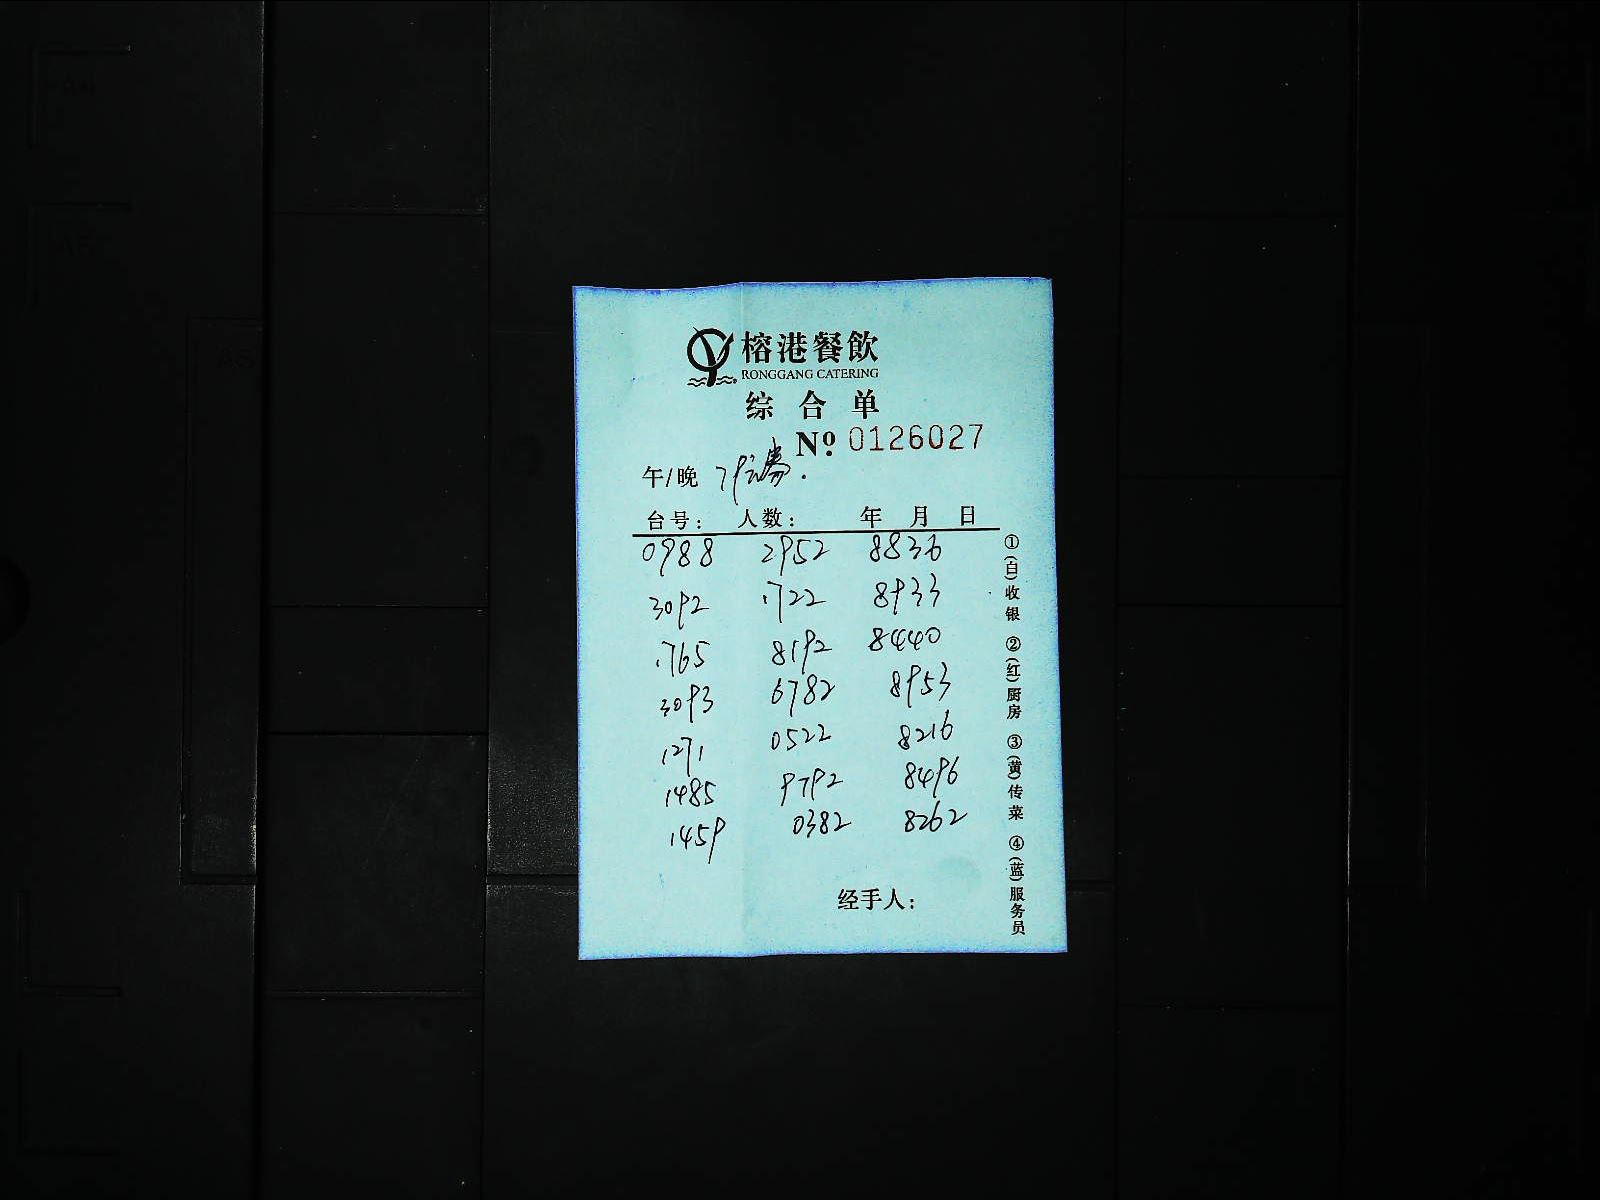 榕港餐飲
RONGGANG CATERING
综合单
Nº 0126027
午/晚
台号: 人数: 年 月 日
0988 2952 8836
3092 1722 8933
1765 8192 8440
3093 6782 8953
1271 0522 8216
1485 9792 8496
1459 0382 8262
经手人:
①(白)收银 ②(红)厨房 ③(黄)传菜 ④(蓝)服务员